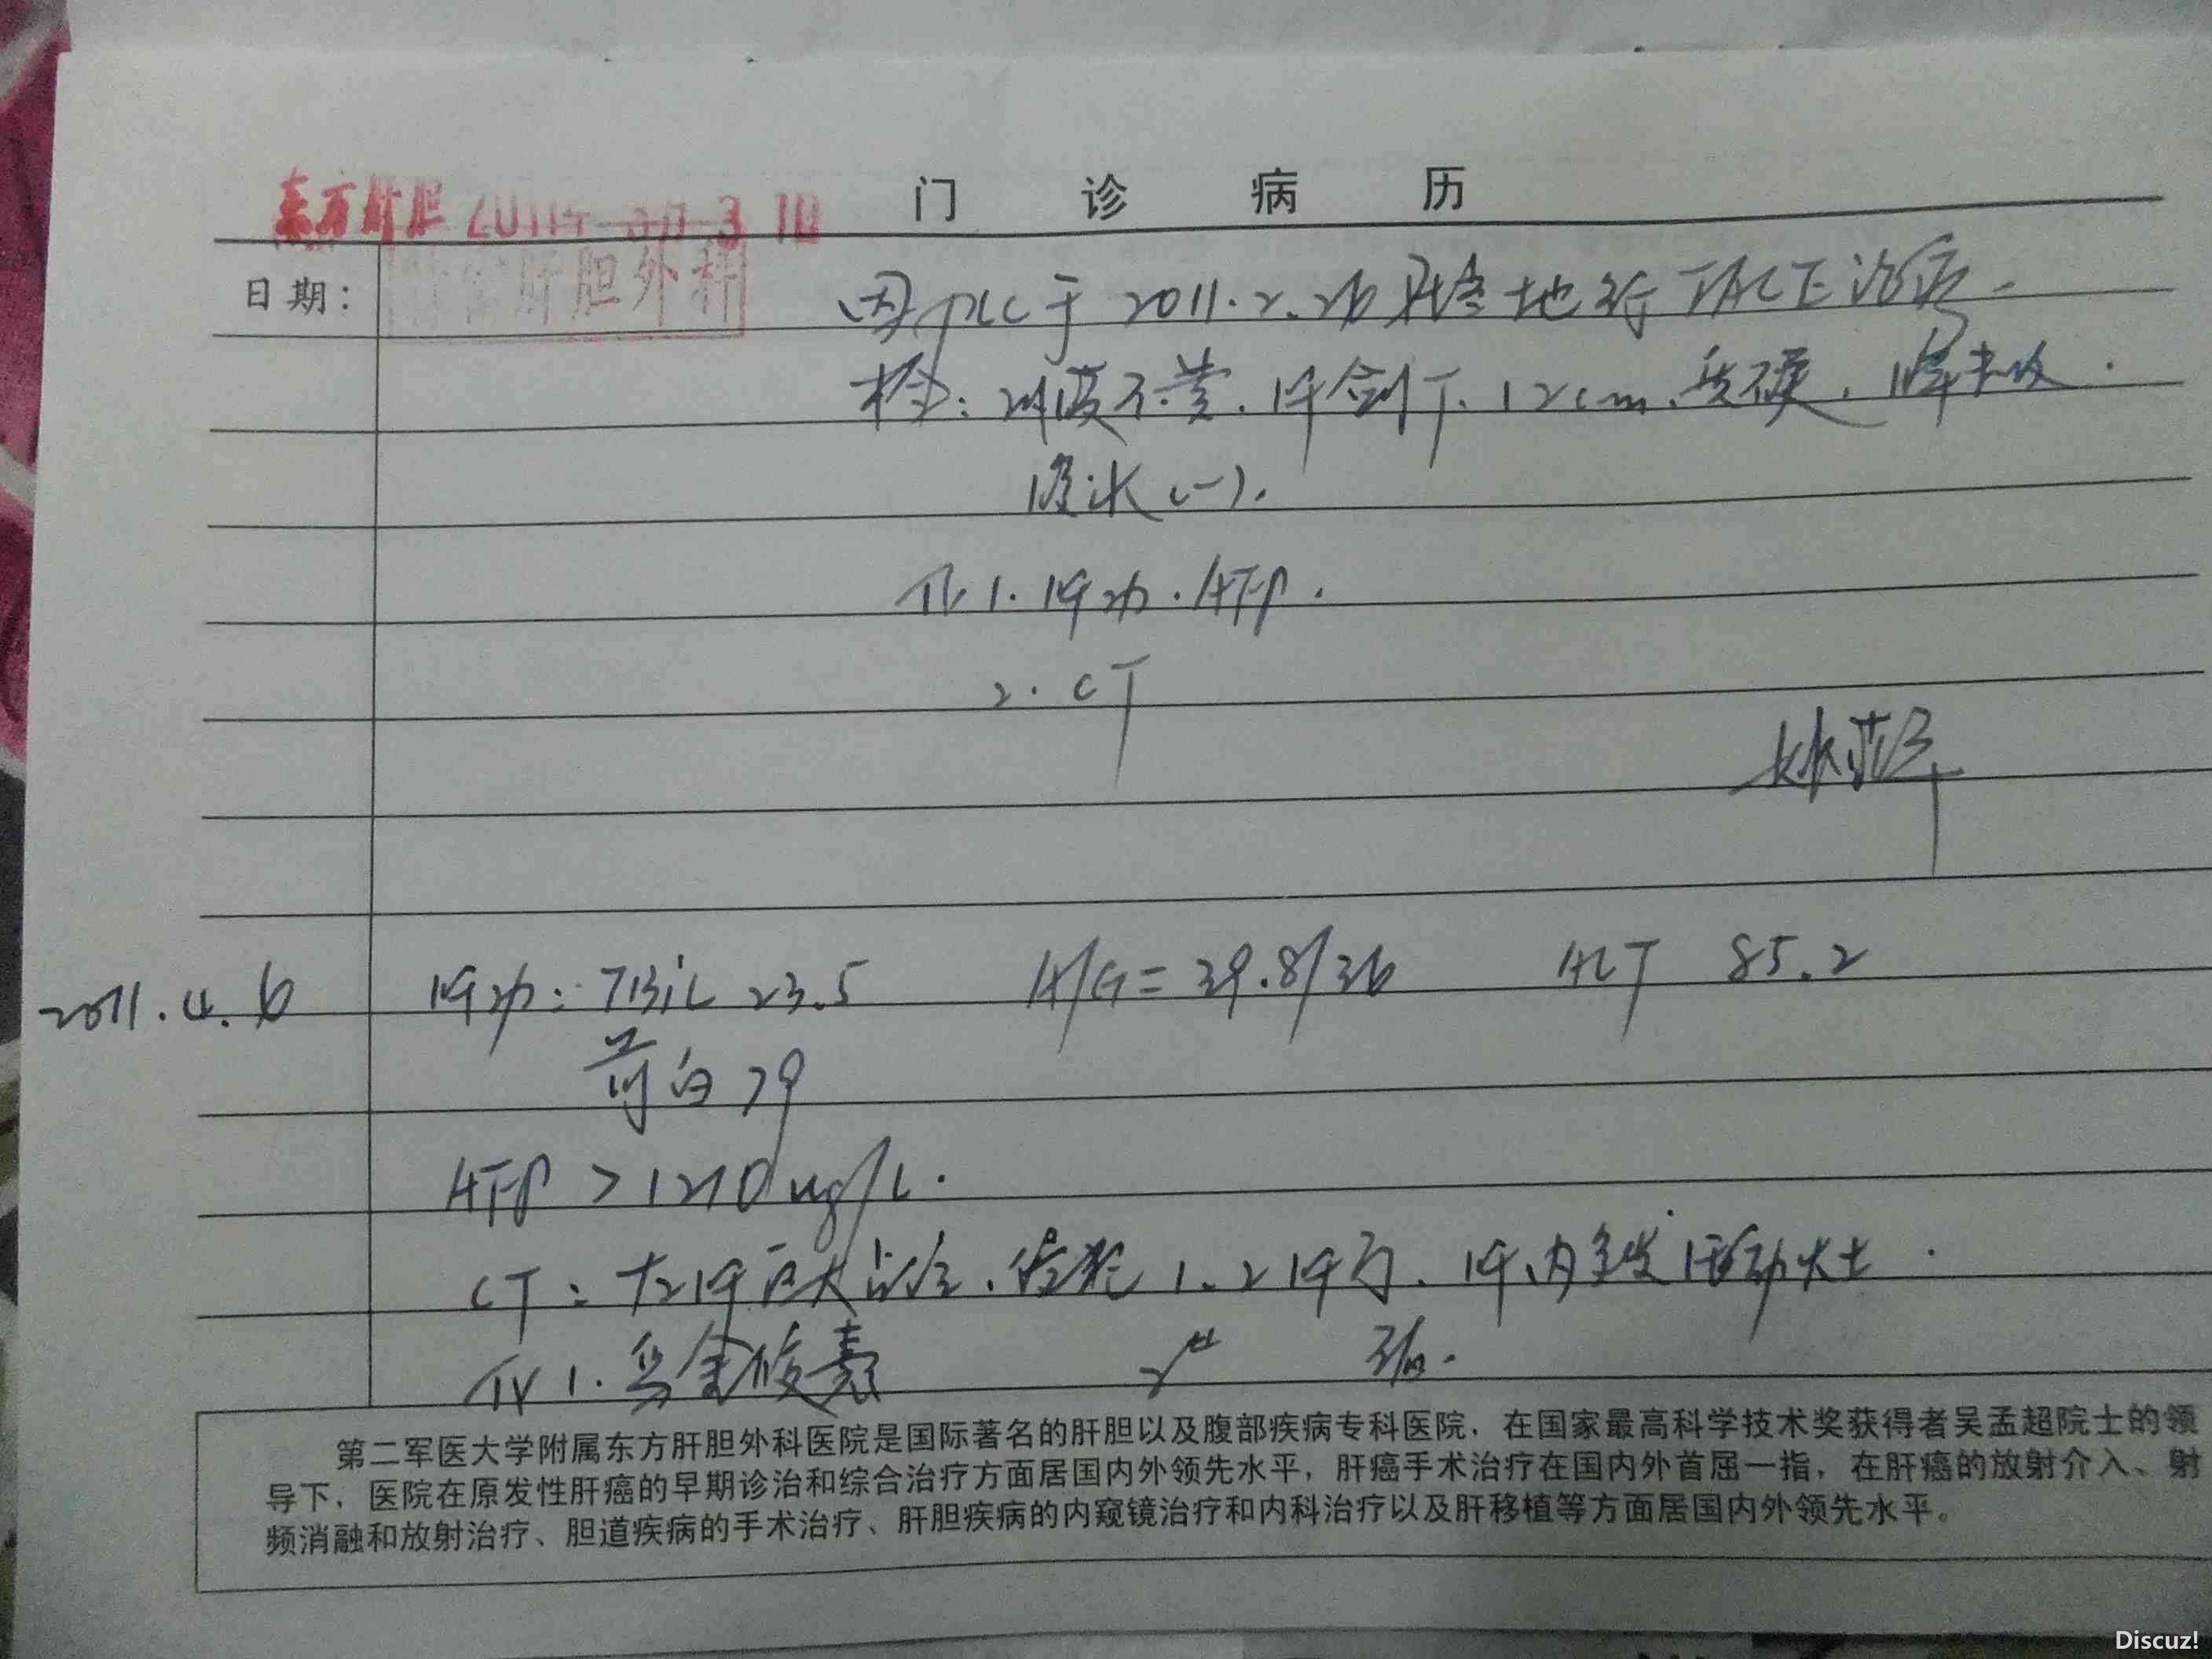 门诊病历
东方肝胆 2011年 3 10
日期：
肝胆外科
因PLC于2011.2.26在当地行TACE治疗.
检：巩膜不黄.肝剑下12cm.质硬.脾未及.
腹水(-).
R 1.肝功.AFP.
2.CT
2011.4.6 肝功：TBiL 23.5 A/G=39.8/36 ALT 85.2
前白79
AFP >1210ug/L.
CT：左肝巨大占位.1、2肝门.肝内多发活动灶.
R 1.乌金胶囊
第二军医大学附属东方肝胆外科医院是国际著名的肝胆以及腹部疾病专科医院，在国家最高科学技术奖获得者吴孟超院士的领
导下，医院在原发性肝癌的早期诊治和综合治疗方面居国内外领先水平，肝癌手术治疗在国内外首屈一指，在肝癌的放射介入、射
频消融和放射治疗、胆道疾病的手术治疗、肝胆疾病的内窥镜治疗和内科治疗以及肝移植等方面居国内外领先水平。
Discuz!